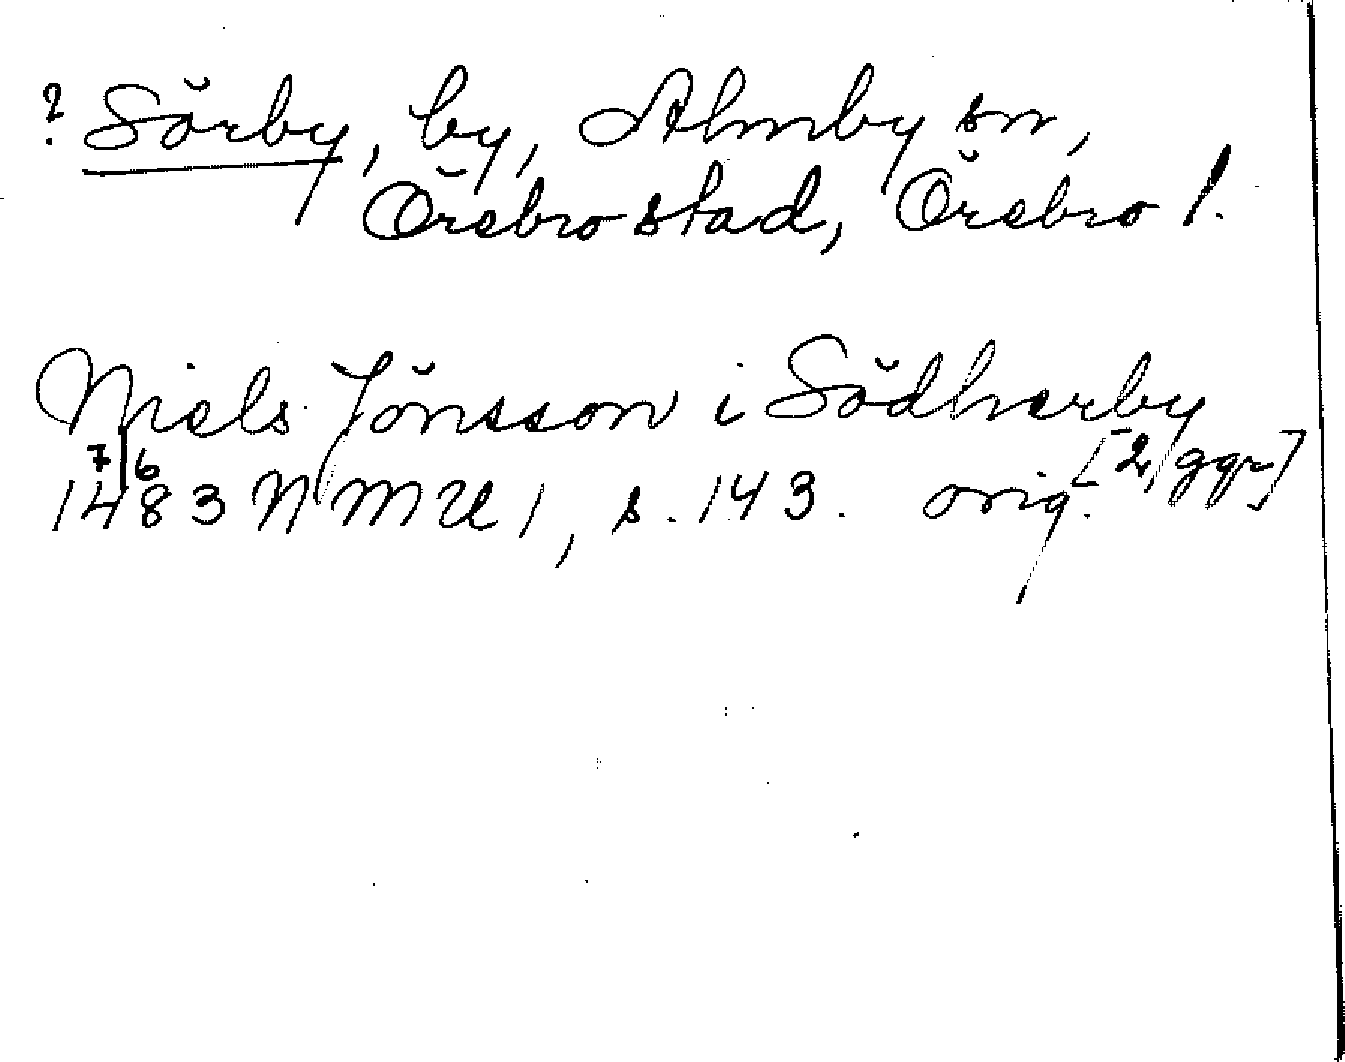 ? Sörby, by, Almby sn,
Örebro stad, Örebro l.
Niels Jönsson i Södherby
[2 ggr]
7/6
1483 NMU 1, s. 143. orig.